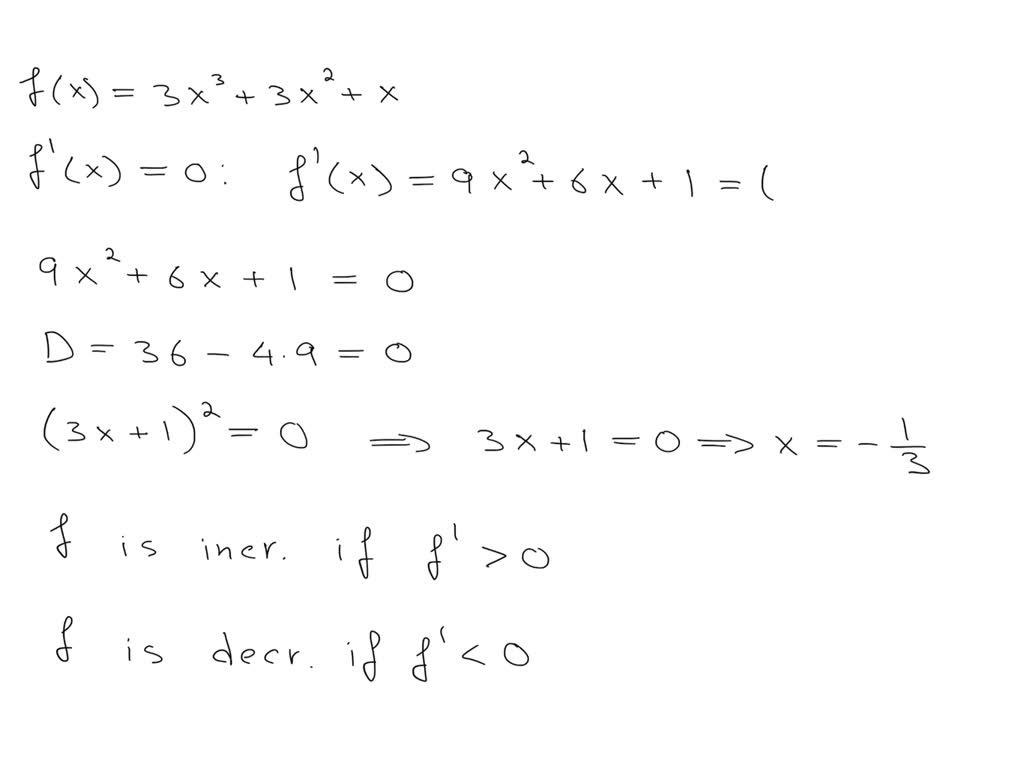 f(x) = 3x³ + 3x² + x
f'(x) = 0: f'(x) = 9x² + 6x + 1 = (
9x² + 6x + 1 = 0
D = 36 - 4·9 = 0
(3x + 1)² = 0 ⟹ 3x + 1 = 0 ⟹ x = -1/3
f is incr. if f' > 0
f is decr. if f' < 0